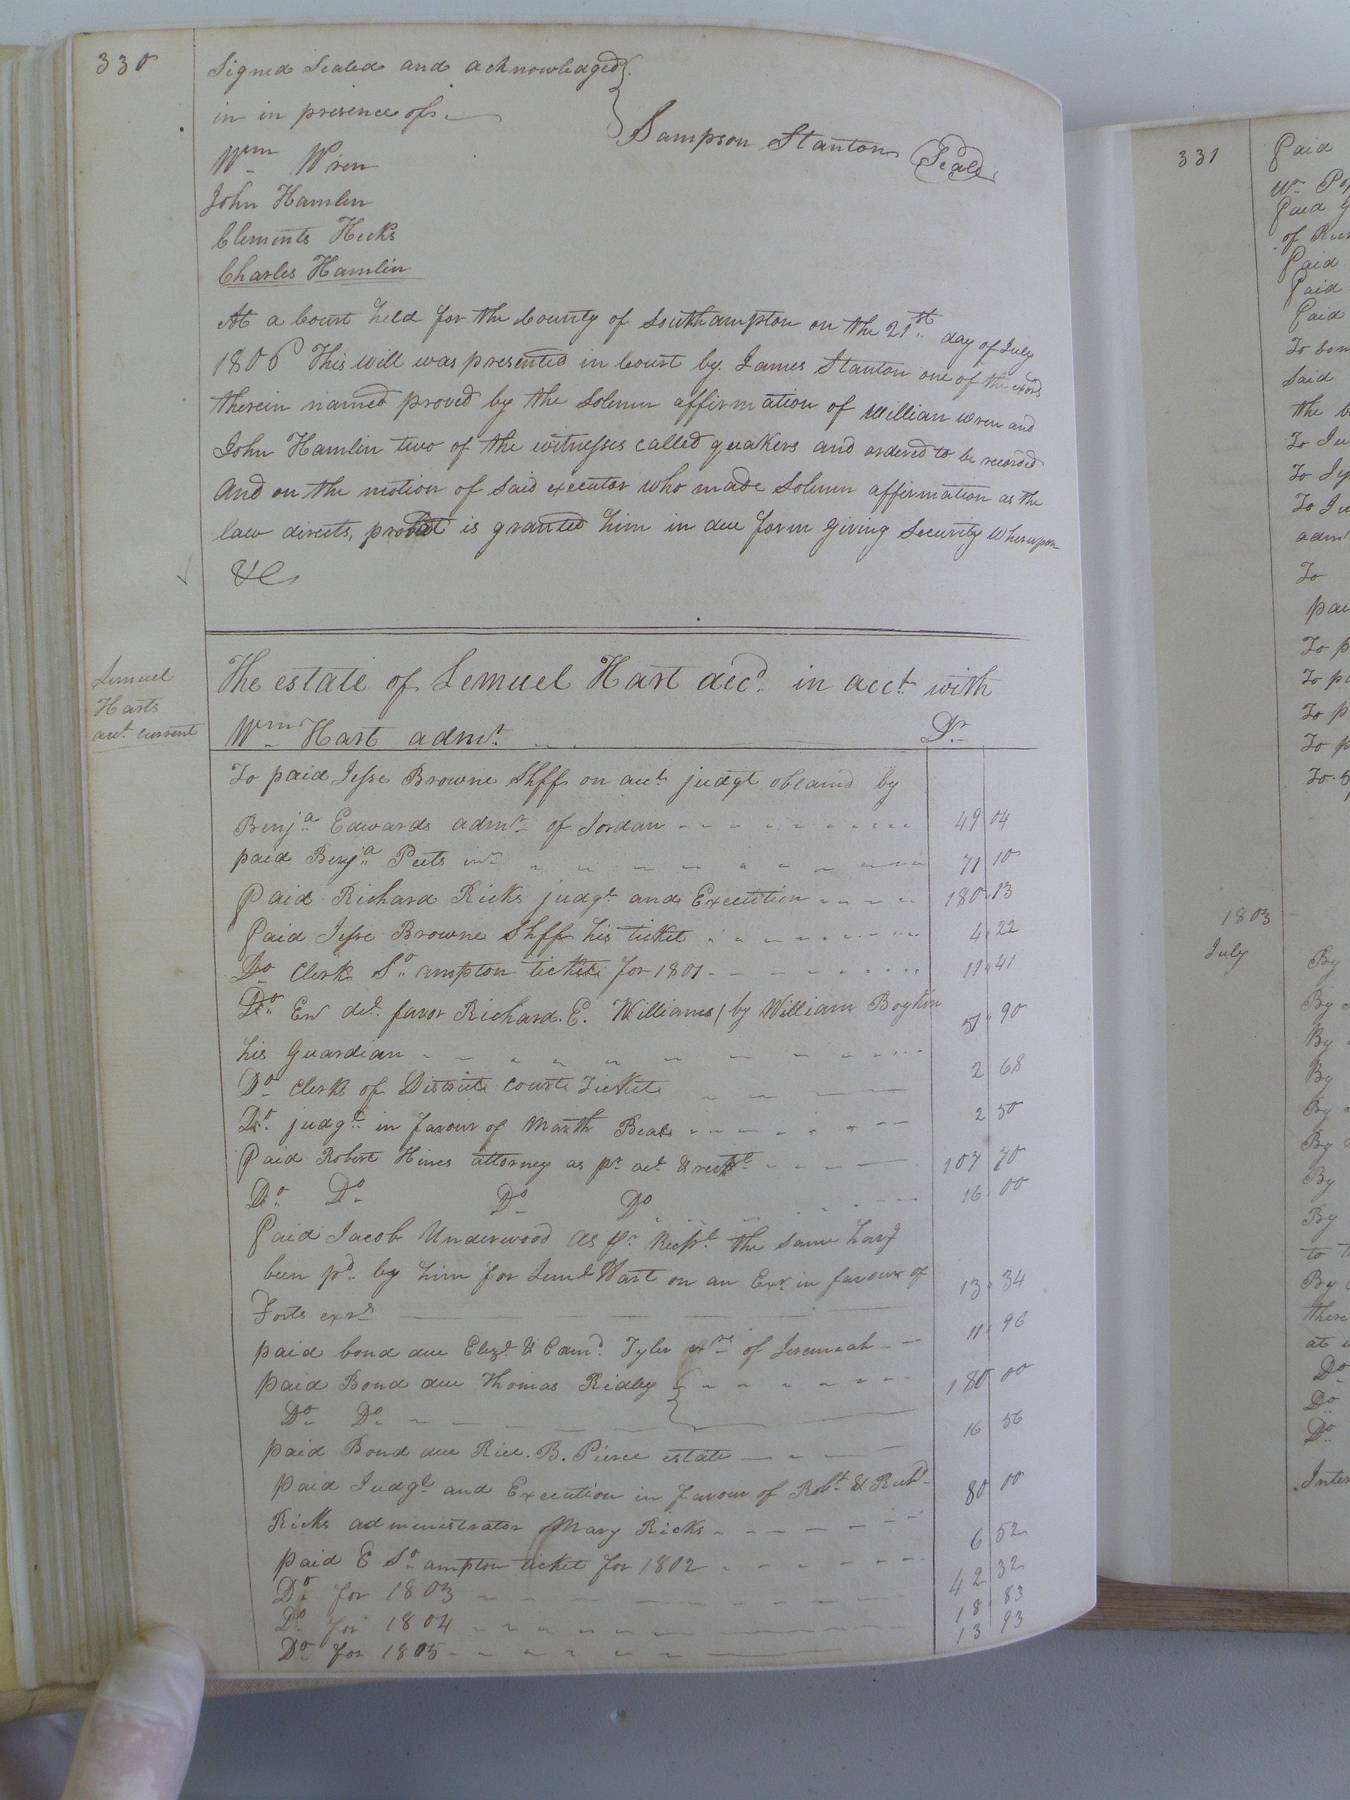 330
Signed Sealed and acknowledged
in in presence of
Sampson Stanton Seal
Wm Wren
John Hamlin
Clements Hicks
Charles Hamlin
At a Court held for the County of Southampton on the 21st day of July
1806 This will was presented in Court by James Stanton one of the exors
therein named proved by the Solemn affirmation of William Wren and
John Hamlin two of the witnesses called quakers and ordered to be recorded
And on the motion of said executor who made Solemn affirmation as the
law directs, probat is granted him in due form giving Security Whereupon
&C
Lemuel
Harts
acct. current
The estate of Lemuel Hart decd. in acct. with
Wm Hart admr. Dr
To paid Jesse Browne Shff on acct. judgt obtaind by
Benja. Edwards admr. of Jordan 49 04
paid Benja. Peets 71 10
Paid Richard Ricks judgt. and Execution 180 13
Paid Jesse Browne Shff his ticket 4 22
Do Clerk So.ampton tickets for 1801 11 41
Do. favor Richard. E. Williams / by William Boykin
his Guardian 51 90
Do Clerks of District Courts Tickets 2 68
Do. judgt. in favour of Marth Beal 2 50
Paid Robert Hines attorney as pr. act. & rect. 107 70
Do. Do. Do. Do 16 00
Paid Jacob Underwood as pr. Recpt. the same havg
been pd. by him for Leml. Hart on an Exn in favour of
Forts exrs 13 34
paid bond due Elizt. & Edmd. Tyler exrs of Jeremiah 11 96
paid Bond due Thomas Ridley 180 00
Do. Do. 16 56
paid Bond due Rice. B. Pierce estate
paid Judgt. and Execution in favour of Robt. & Richd.
Ricks administrator Mary Ricks 80 00
paid E So.ampton ticket for 1802 6 52
Do for 1803 42 32
Do for 1804 18 83
Do for 1805 13 93
331
Paid
Wm
Paid
of
Paid
Paid
Paid
To
Said
the
To
To
To
adm
To
To
To
To
To
To
1803
July
By
By
By
By
By
By
By
By
to
By
there
at
Do
Do
Do
Inter